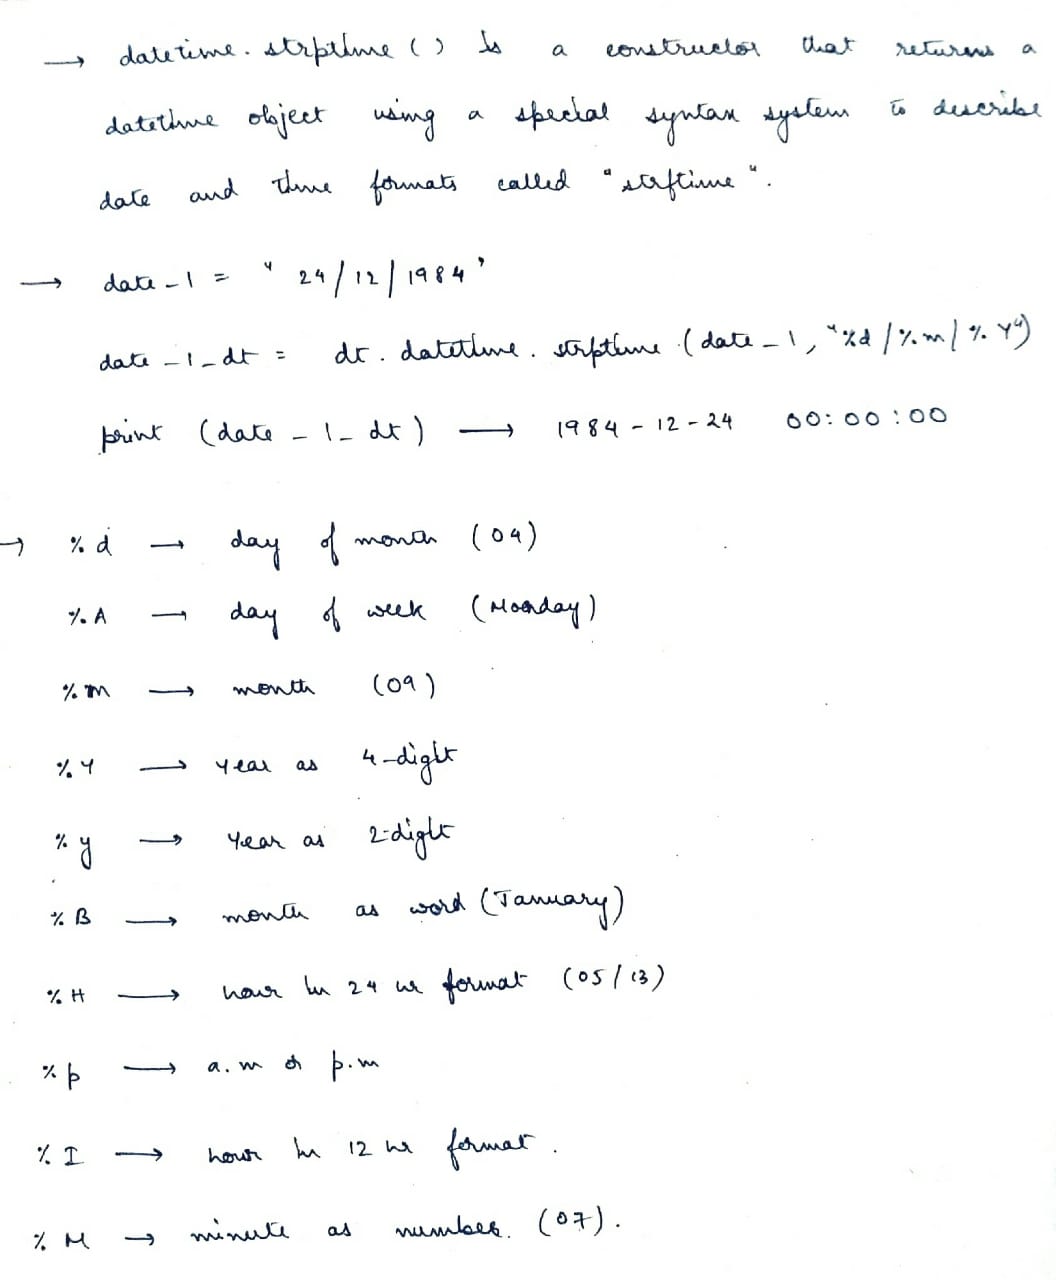 → datetime. strptime () is a constructor that returns a
datetime object using a special syntax system to describe
date and time formats called "strftime".
→ date_1 = " 24/12/1984'
date_1_dt = dt. datetime. strptime (date_1, "%d/%m/%Y")
print (date_1_dt) → 1984-12-24 00:00:00
→ %d → day of month (04)
%A → day of week (Monday)
%m → month (09)
%Y → year as 4-digit
%y → Year as 2-digit
%B → month as word (January)
%H → hour in 24 hr format (05/13)
%p → a.m or p.m
%I → hour in 12 hr format.
%M → minute as number. (07).